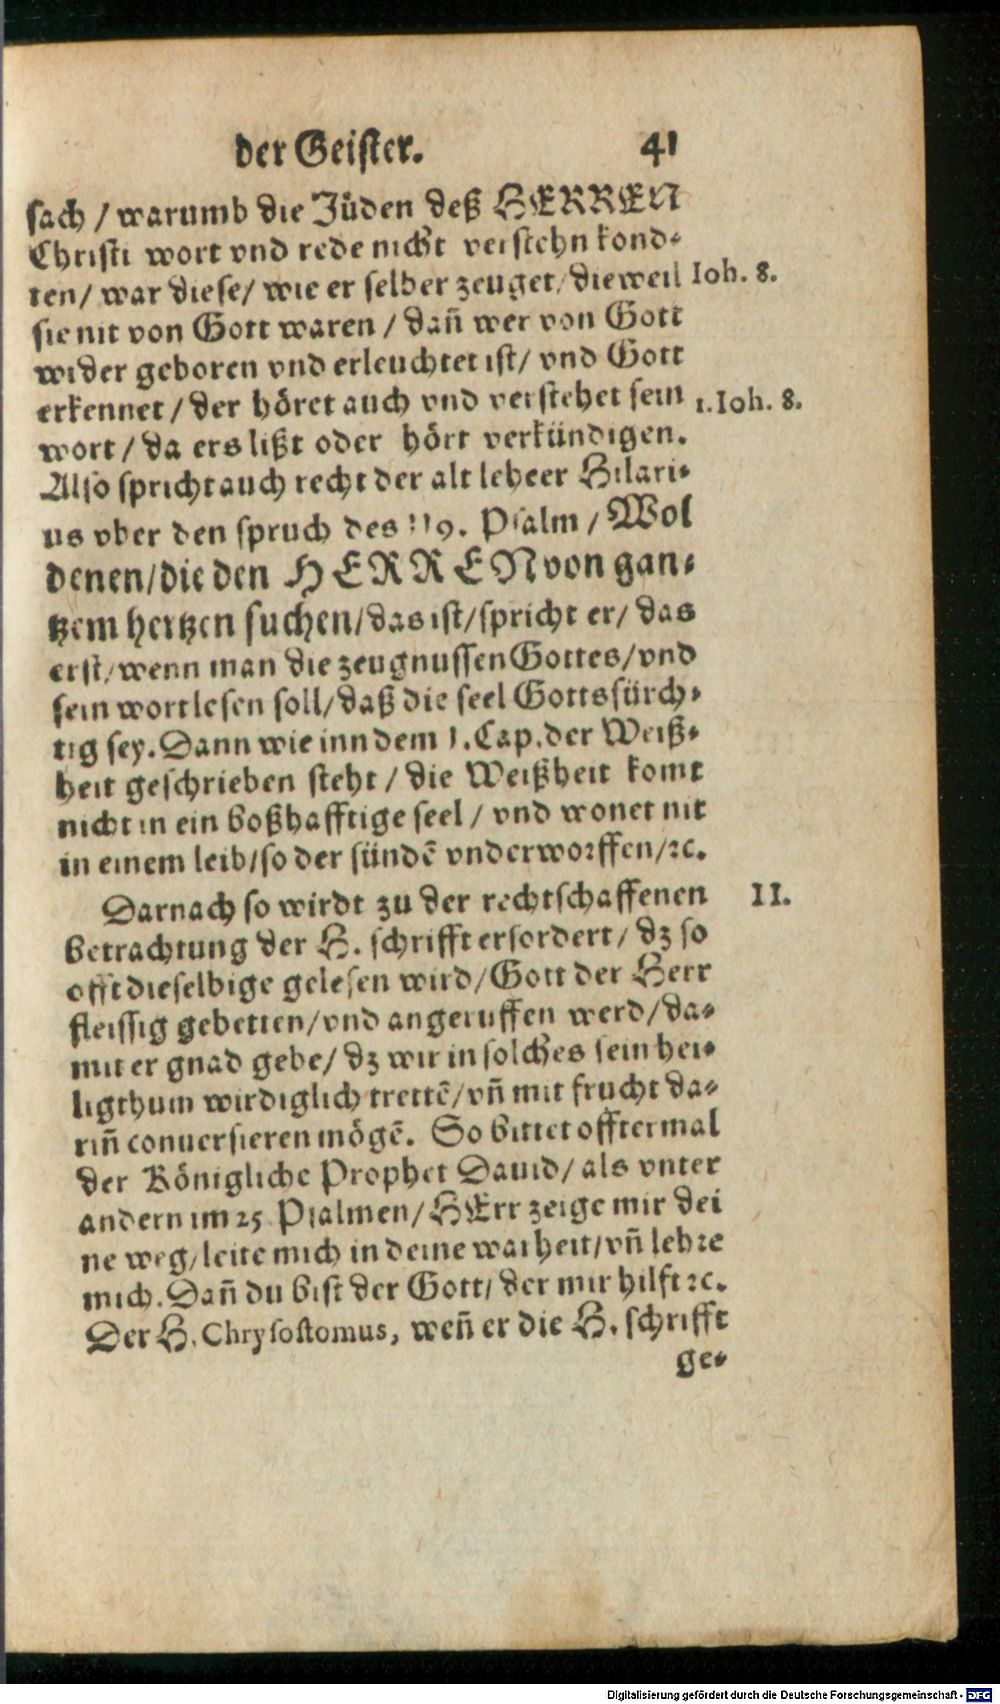 der Geister. 41
sach / warumb die Jüden deß HERREN
Christi wort vnd rede nicht verstehn kond-
ten / war diese / wie er selber zeuget / dieweil Ioh. 8.
sie nit von Gott waren / dañ wer von Gott
wider geboren vnd erleuchtet ist / vnd Gott
erkennet / der höret auch vnd verstehet sein 1. Ioh. 8.
wort / da ers lißt oder hört verkündigen.
Also spricht auch recht der alt leheer Hilari-
us vber den spruch des 119. Psalm / Wol
denen / die den HERREN von gan-
tzem hertzen suchen / das ist / spricht er / das
erst / wenn man die zeugnussen Gottes / vnd
sein wort lesen soll / daß die seel Gottsfürch-
tig sey. Dann wie inn dem 1. Cap. der Weiß-
heit geschrieben steht / die Weißheit komt
nicht in ein boßhafftige seel / vnd wonet nit
in einem leib / so der sündē vnderworffen / ꝛc.
Darnach so wirdt zu der rechtschaffenen II.
betrachtung der H. schrifft erfordert / dz so
offt dieselbige gelesen wird / Gott der Herr
fleissig gebetten / vnd angeruffen werd / da-
mit er gnad gebe / dz wir in solches sein hei-
ligthum wirdiglich trettē / vñ mit frucht da-
riñ conuersieren mögē. So bittet offtermal
der Königliche Prophet Dauid / als vnter
andern im 25 Psalmen / HErr zeige mir dei
ne weg / leite mich in deine warheit / vñ lehre
mich. Dañ du bist der Gott / der mir hilft ꝛc.
Der H. Chrysostomus, weñ er die H. schrifft
ge-
Digitalisierung gefördert durch die Deutsche Forschungsgemeinschaft - DFG